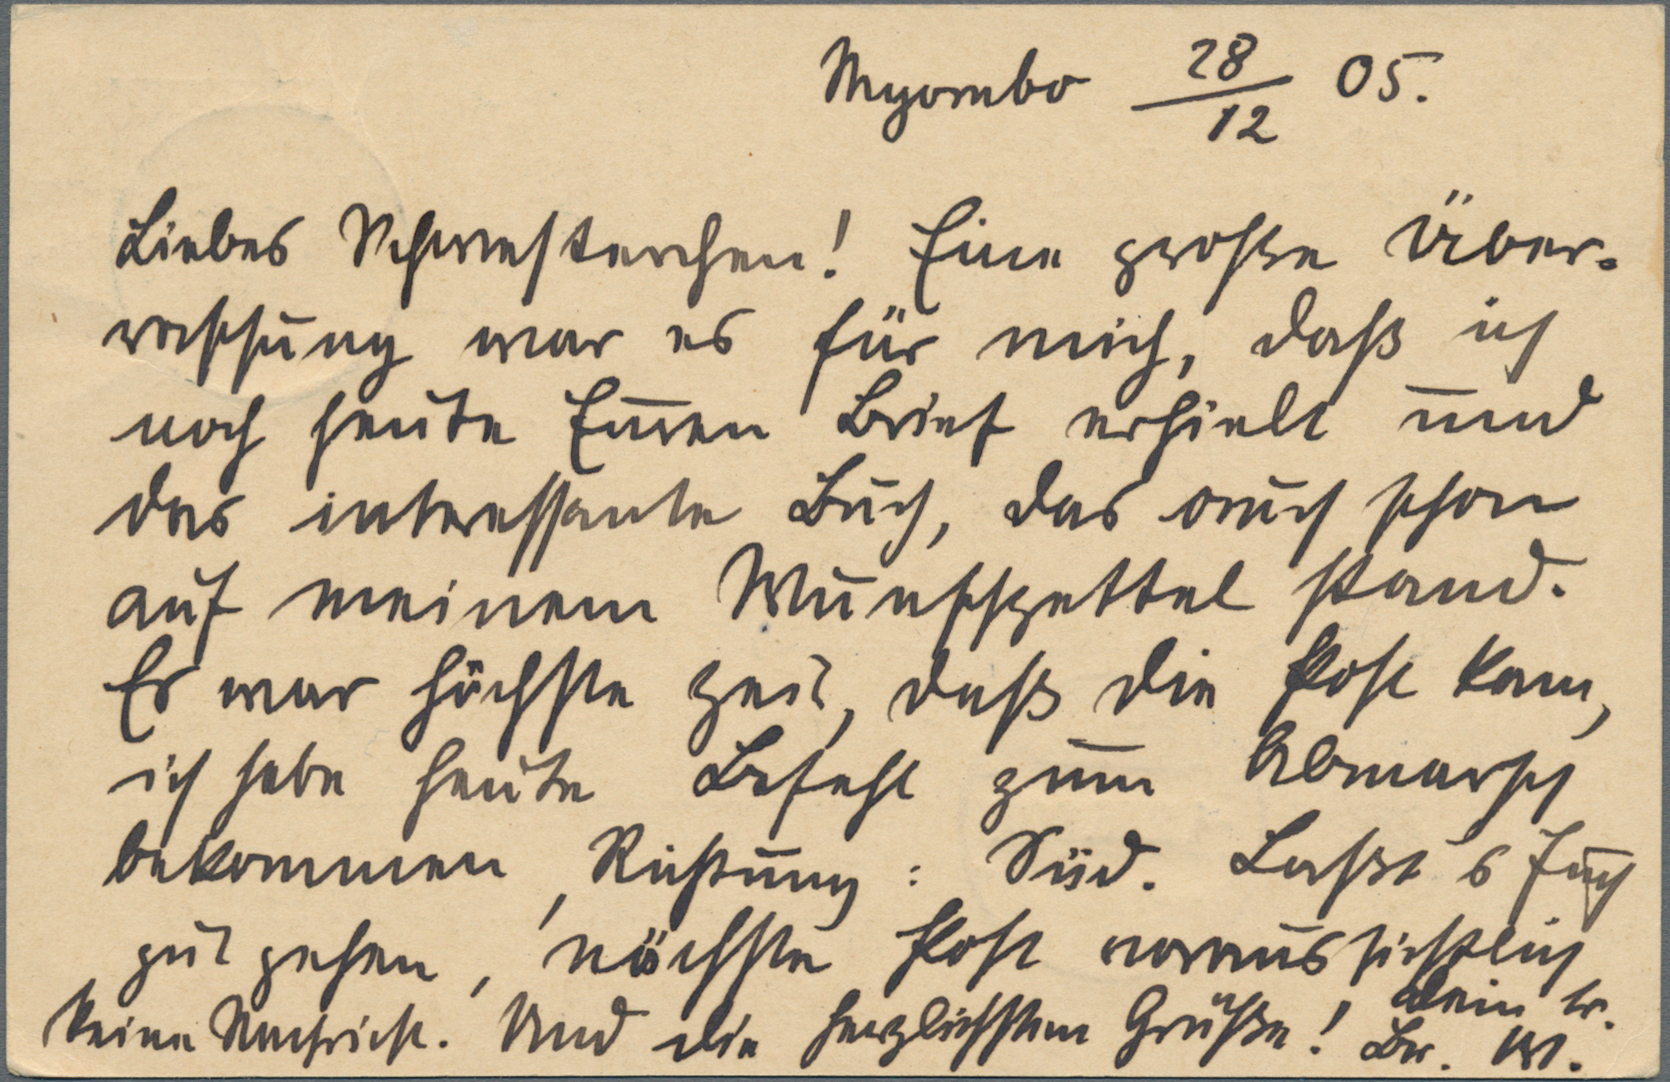 Myombo 28/12 05.
Liebes Schwesterchen! Eine große Über-
raschung war es für mich, daß ich
noch heute Euren Brief erhielt und
das interessante Buch, das auch schon
auf meinem Wunschzettel stand.
Es war höchste Zeit, daß die Post kam,
ich habe heute Befehl zum Abmarsch
bekommen, Richtung: Süd. Laßt's Euch
gut gehen, nächste Post voraussichtlich
keine Nachricht. Und die herzlichsten Grüße! Dein tr.
Br. W.